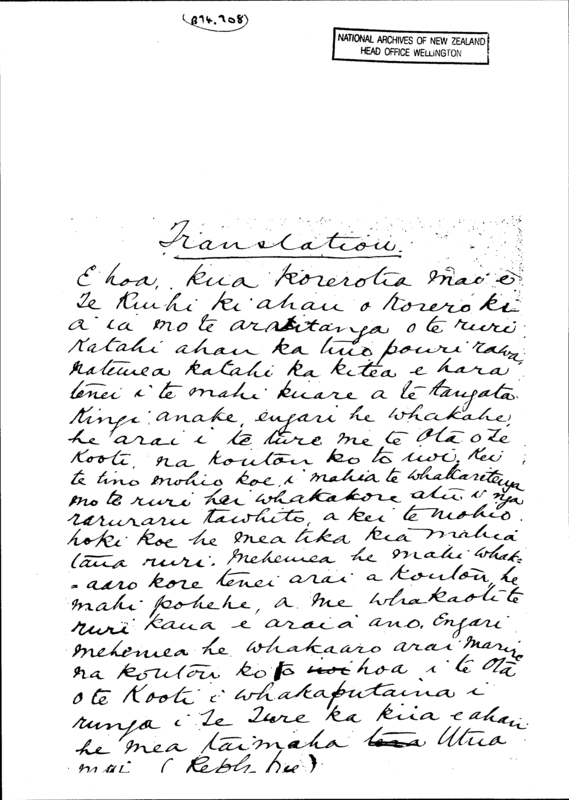 (B74.708)
NATIONAL ARCHIVES OF NEW ZEALAND
HEAD OFFICE WELLINGTON
Translation.
E hoa, kua korerotia mai e
Te Ruihi ki ahau o korero ki
a ia mo te araitanga o te ruri
Katahi ahau ka tino pouri rawa,
natemea katahi ka kitea e hara
tenei i te mahi kuare a te tangata
Kingi anake, engari he whakahe,
he arai i te ture me te Ota o Te
Kooti, na koutou ko to iwi. Kei
te tino mohio koe, i mahia te whakaritenga
mo te ruri hei whakakore atu i nga
raruraru tawhito, a kei te mohio
hoki koe he mea tika kia mahia
taua ruri. Mehemea he mahi whak-
-aaro kore tenei arai a koutou, he
mahi pohehe, a me whakaoti te
ruri kaua e araia ano. Engari
mehemea he whakaaro arai marire
na koutou ko to hoa i te Ota
o te Kooti i whakaputaina i
runga i Te Ture ka kiia e ahau
he mea taimaha Utua
mai (